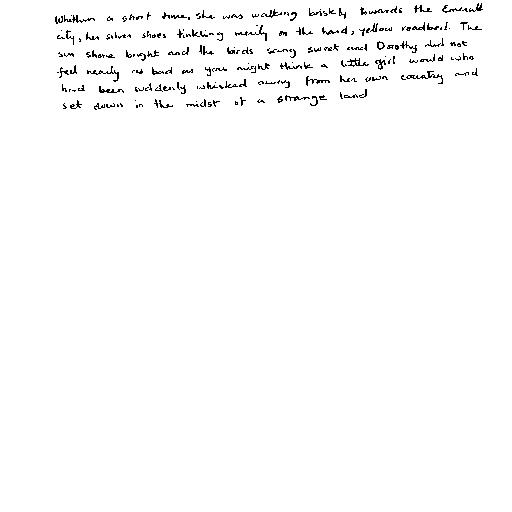 Whithin a short time, she was walking briskly towards the Emerald
city, her silver shoes tinkling merily on the hard, yellow roadbed. The
sun shone bright and the birds sang sweet and Dorothy did not
feel nearly as bad as you might think a little girl would who
had been suddenly whisked away from her own country and
set down in the midst of a strange land